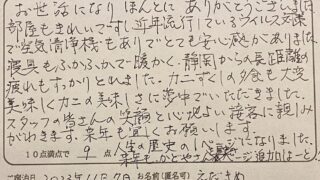 お世話になり ほんとに ありがとうございます
部屋もきれいですし、近年流行しているウイルス対策
で空気清浄機もありでとても安心感がありました
寝具もふかふかで暖かく、静岡からの長距離の
疲れもすっかりとれました。カニずくしの夕食も大変
美味しくカニの美味しさに夢中でいただきました
スタッフの皆さんの笑顔と心地よい接客に親しみ
がわきます。来年も宜しくお願いします。
10点満点で 9 点 人生の歴史の 1ページになりました
来年も、かどやさん
ページ追加
ご宿泊日 2023年11月27日 お名前(匿名可) えだきめ